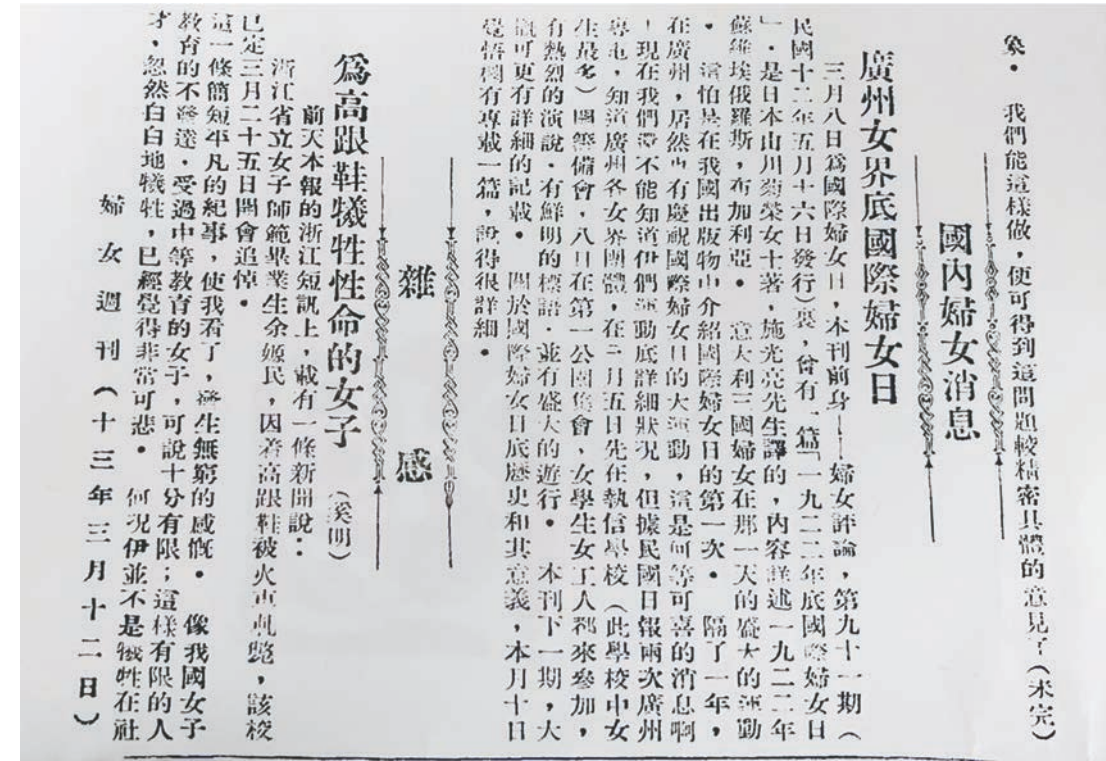 象。　我們能這樣做，便可得到這問題較精密具體的意見了（未完）
國內婦女消息
廣州女界底國際婦女日
三月八日爲國際婦女日，本刊前身——婦女評論，第九十一期（
民國十二年五月十六日發行）裏，曾有一篇「一九二二年底國際婦女日
」，是日本山川菊榮女士著，施光亮先生譯的，內容詳述一九二二年
蘇維埃俄羅斯，布加利亞。　意大利三國婦女在那一天的盛大的運動
。　這怕是在我國出版物中介紹國際婦女日的第一次。　隔了一年，
在廣州，居然也有慶祝國際婦女日的大運動，這是何等可喜的消息啊
！現在我們還不能知道伊們運動底詳細狀況，但據民國日報兩次廣州
專電，知道廣州各女界團體，在三月五日先在執信學校（此學校中女
生最多）開籌備會，八日在第一公園集會，女學生女工人都來參加，
有熱烈的演說，有鮮明的標語，並有盛大的遊行。　本刊下一期，大
概可更有詳細的記載。　關於國際婦女日底歷史和其意義，本月十日
覺悟欄有專載一篇，說得很詳細。
雜感
爲高跟鞋犧牲性命的女子（奚明）
前天本報的浙江短訊上，載有一條新聞說：
浙江省立女子師範畢業生余姬民，因着高跟鞋被火車軋斃，該校
已定三月二十五日開會追悼。
這一條簡短平凡的紀事，使我看了，發生無窮的感慨。　像我國女子
教育的不發達，受過中等教育的女子，可說十分有限；這樣有限的人
才，忽然白白地犧牲，已經覺得非常可悲。　何況伊並不是犧牲在社
婦女週刊（十三年三月十二日）